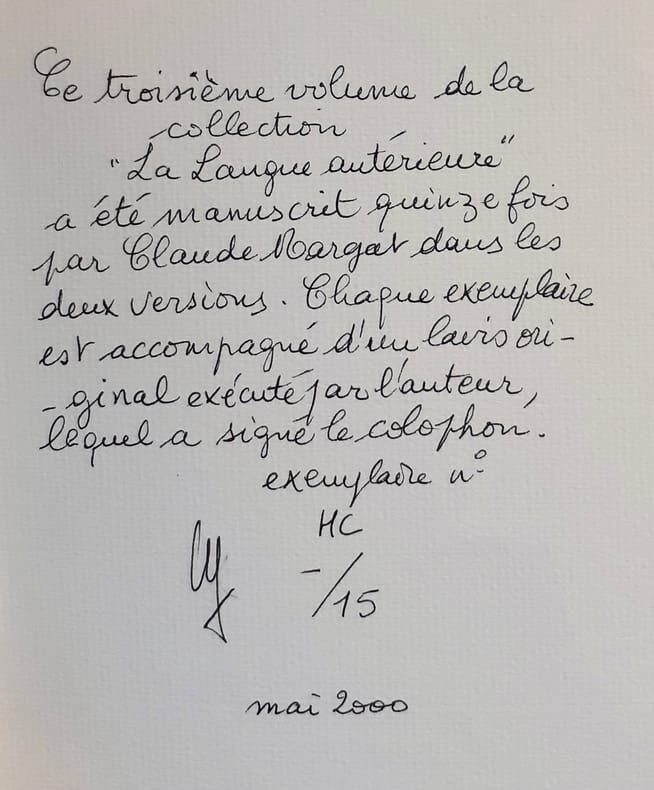 Ce troisième volume de la
collection
"La Langue antérieure"
a été manuscrit quinze fois
par Claude Margat dans les
deux versions. Chaque exemplaire
est accompagné d'un lavis ori-
-ginal exécuté par l'auteur,
lequel a signé le colophon.
exemplaire n°
HC
-/15
mai 2000